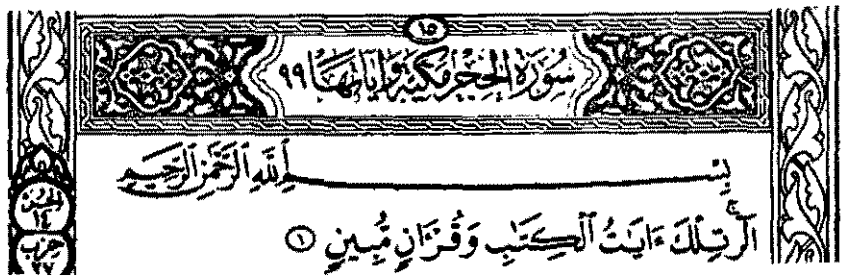 ١٥
سُورَةُ الْحِجْرِ مَكِّيَّة وَآيَاتُهَا ٩٩
بِسْمِ اللَّهِ الرَّحْمَٰنِ الرَّحِيمِ
الٓر تِلْكَ ءَايَٰتُ ٱلْكِتَٰبِ وَقُرْءَانٍ مُّبِينٍ ١
الجزء
١٤
حزب
٢٧